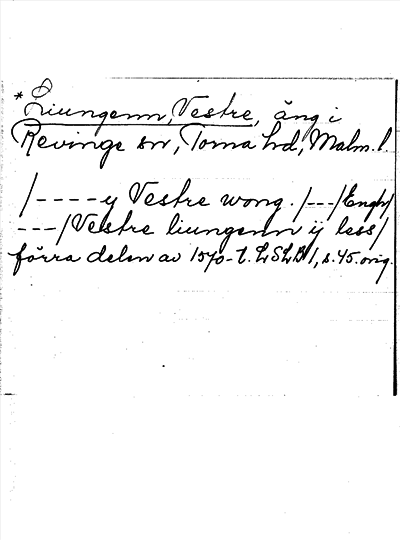 * Liungenn, Vestre, äng i
Revinge sn, Torna hd, Malm. l.
/----y Vestre wong. /---/Engh/
---/Vestre liungenn ij less/
förra delen av 1570-t. LSLB 1, s. 45. orig.